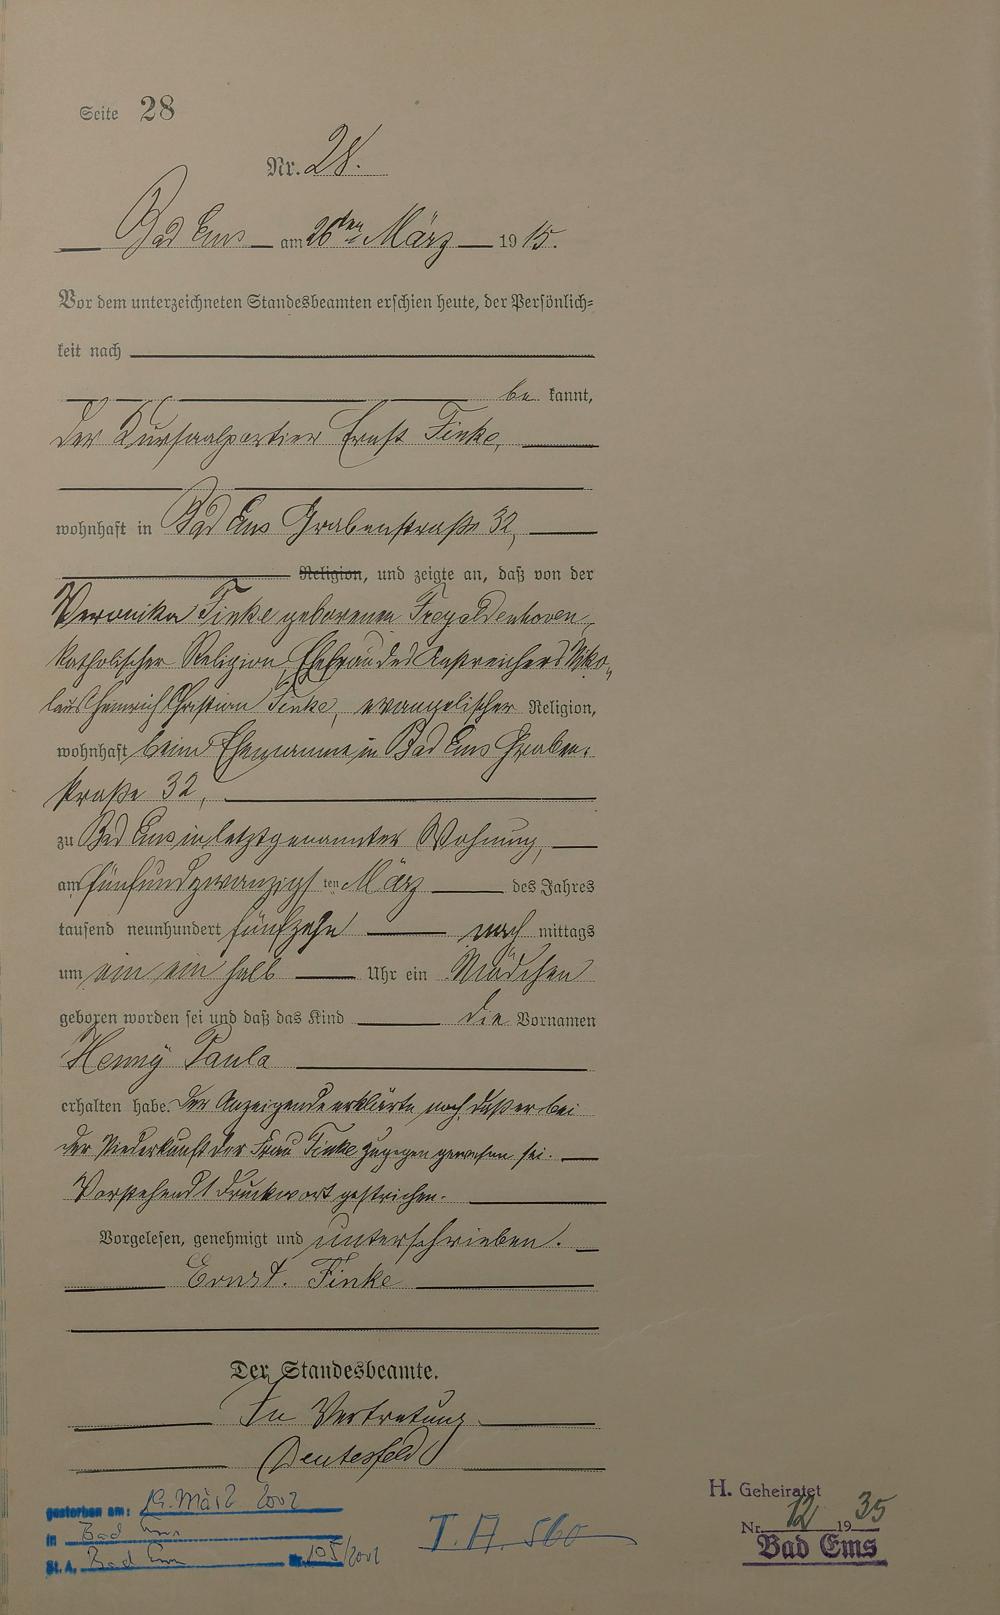 Seite 28
Nr. 28.
Bad Ems am 26ten März 1915.
Vor dem unterzeichneten Standesbeamten erschien heute, der Persönlich-
keit nach
be kannt,
der Kursaalportier Ernst Finke,
wohnhaft in Bad Ems Grabenstraße 32,
Religion, und zeigte an, daß von der
Veronika Finke geborenen
katholischer Religion, Ehefrau des Anstreichers Niko-
laus Heinrich Christian Finke, evangelischer Religion,
wohnhaft beim Ehemanne in Bad Ems Graben-
straße 32,
zu Bad Ems in letztgenannter Wohnung,
am fünfundzwanzigsten März des Jahres
tausend neunhundert fünfzehn nach mittags
um ein ein halb Uhr ein Mädchen
geboren worden sei und daß das Kind die Vornamen
Henny Paula
erhalten habe. Der Anzeigende erklärte noch, daß er bei
der Niederkunft der Frau Finke zugegen gewesen sei.
Vorstehend 1 Druckwort gestrichen.
Vorgelesen, genehmigt und unterschrieben.
Ernst. Finke
Der Standesbeamte.
In Vertretung
gestorben am: 19. März 2002
in Bad Ems
St. A. Bad Ems Nr. 105/2002
T. A. 560
H. Geheiratet
Nr. 12 1935
Bad Ems